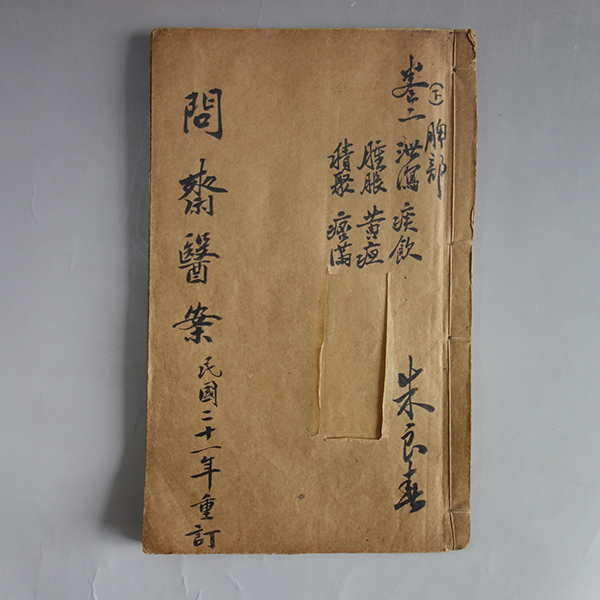 卷二
(下)脾部
泄瀉 痰飲
腫脹 黃疸
積聚 痞滿
朱良春
問齋醫案
民國二十一年重訂